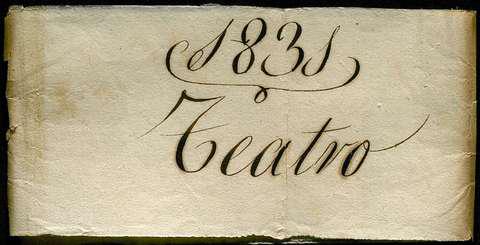 1831
Teatro